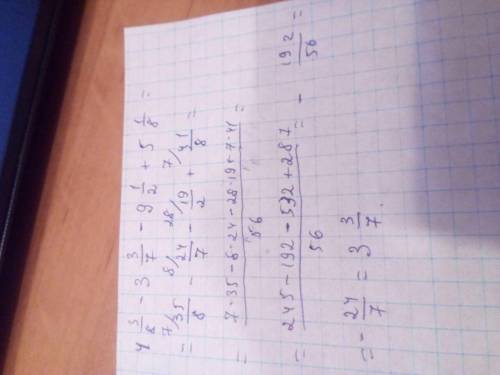 4 3/8 - 3 3/7 - 9 1/2 + 5 1/8 =
= 7/ 35/8 - 8/ 24/7 - 28/ 19/2 + 7/ 41/8 =
= 7·35 - 8·24 - 28·19 + 7·41 / 56 =
= 245 - 192 - 532 + 287 / 56 = - 192/56 =
= - 24/7 = 3 3/7.